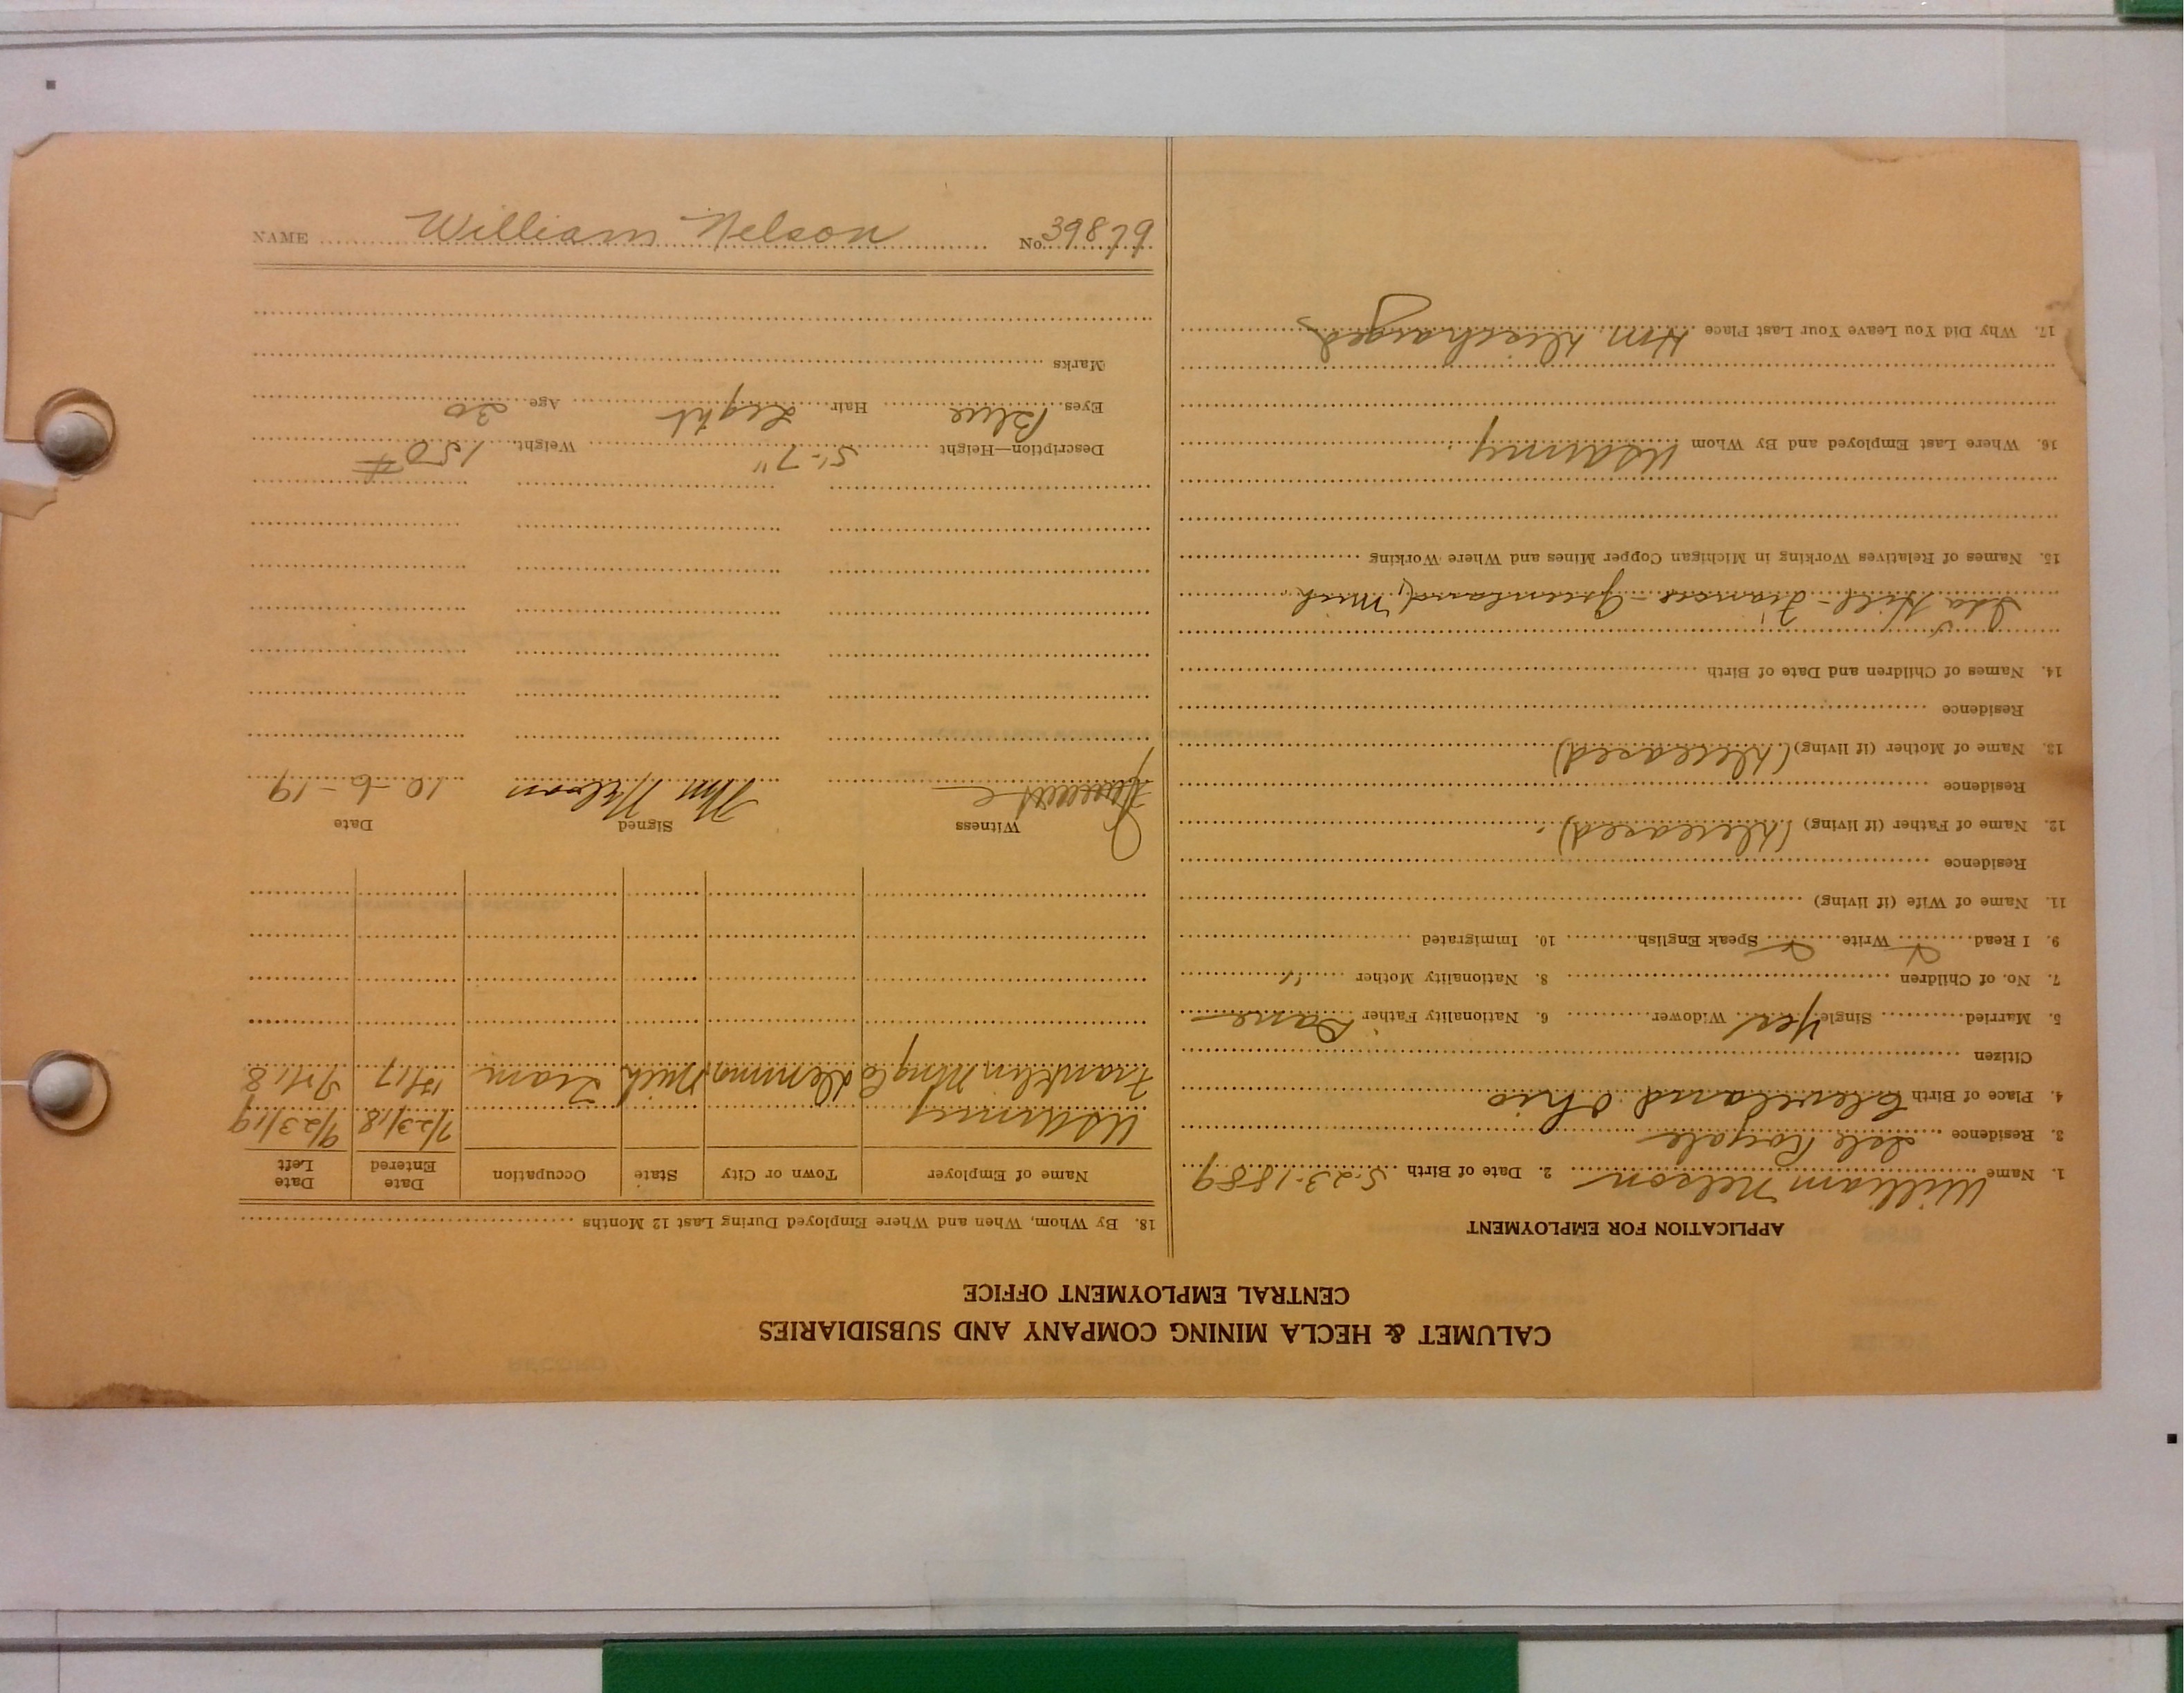 CALUMET & HECLA MINING COMPANY AND SUBSIDIARIES
CENTRAL EMPLOYMENT OFFICE
APPLICATION FOR EMPLOYMENT
1. Name William Nelson 2. Date of Birth 5-23-1889
3. Residence Isle Royale
4. Place of Birth Cleveland Ohio
Citizen
5. Married Single Yes Widower 6. Nationality Father Dane
7. No. of Children 8. Nationality Mother "
9. I Read Write Speak English 10. Immigrated
11. Name of Wife (if living)
Residence
12. Name of Father (if living) (Deceased)
Residence
13. Name of Mother (if living) (Deceased)
Residence
14. Names of Children and Date of Birth
Ida Hill - Greenland, Mich
15. Names of Relatives Working in Michigan Copper Mines and Where Working
16. Where Last Employed and By Whom US Army
17. Why Did You Leave Your Last Place Hon. Discharged
18. By Whom, When and Where Employed During Last 12 Months
Name of Employer Town or City State Occupation Date Entered Date Left
US Army 7/23/18 9/23/19
Franklin Mng Co Demmon Mich Tram
Witness Signed Date
Wm Nelson 10-6-19
Description—Height 5'-7" Weight 150 #
Eyes Blue Hair Light Age 30
Marks
NAME William Nelson No. 39879